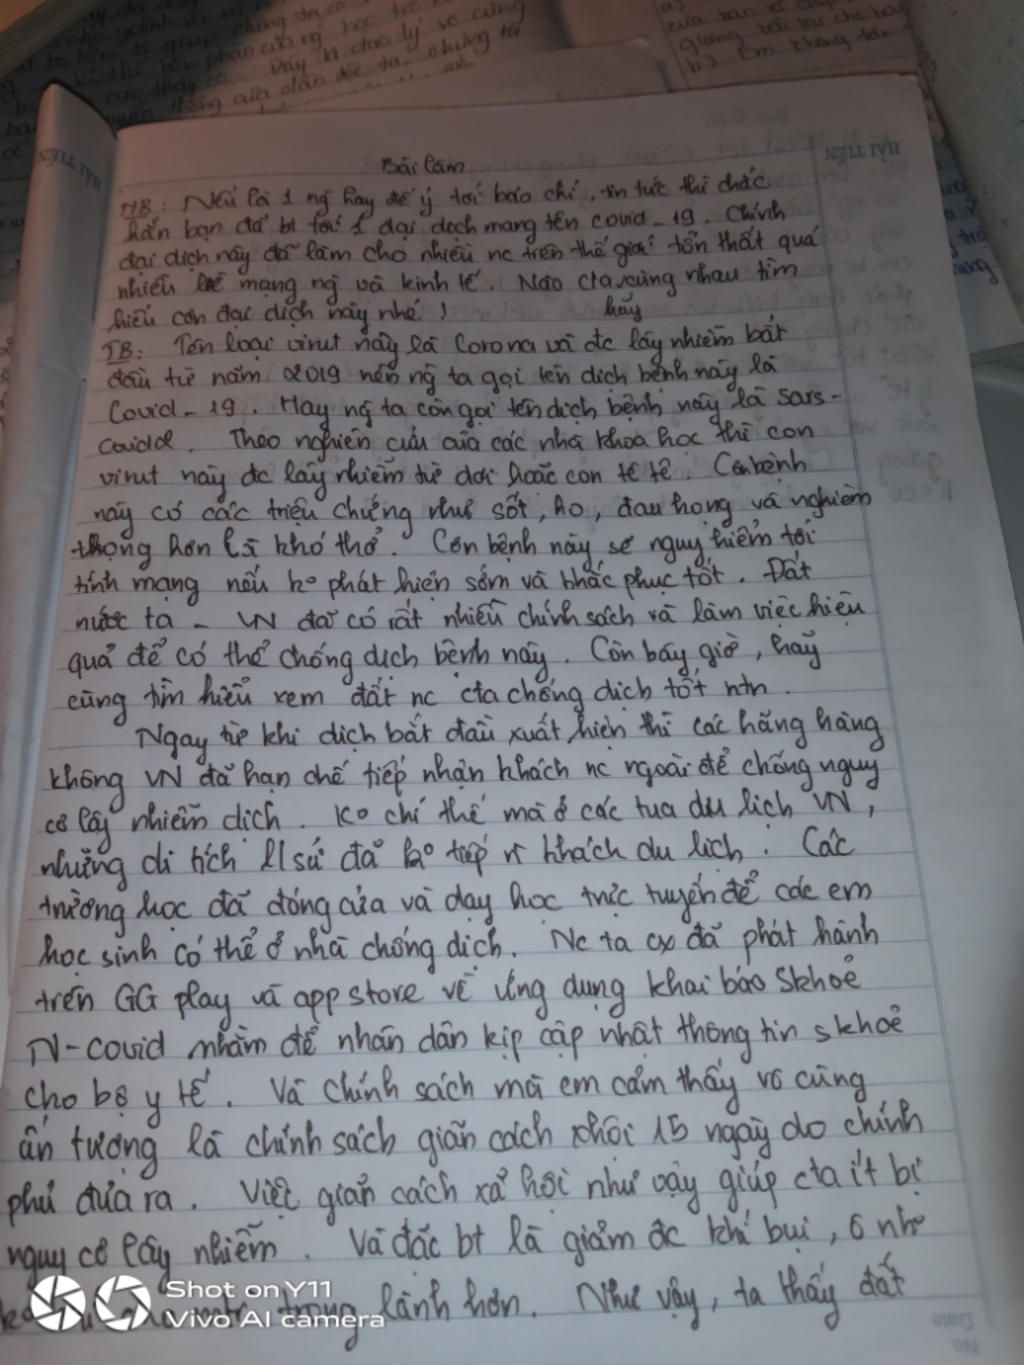 Bài làm
MB: Nếu là 1 ng hay để ý tới báo chí, tin tức thì chắc
hẳn bạn đã bt tới 1 đại dịch mang tên covid-19. Chính
đại dịch này đã làm cho nhiều nc trên thế giới tổn thất quá
nhiều về mạng ng và kinh tế. Nào cta cùng nhau tìm
hãy
hiểu cơn đại dịch này nhé!
TB: Tên loại virut này là Corona và đc lây nhiễm bắt
đầu từ năm 2019 nên ng ta gọi tên dịch bệnh này là
Covid-19. Hay ng ta còn gọi tên dịch bệnh này là sars-
. Theo nghiên cứu của các nhà khoa học thì con
virut này đc lây nhiễm từ dơi hoặc con tê tê. Cơn bệnh
này có các triệu chứng như sốt, ho, đau họng và nghiêm
trọng hơn là khó thở. Cơn bệnh này sẽ nguy hiểm tới
tính mạng nếu ko phát hiện sớm và khắc phục tốt. Đất
nước ta - VN đã có rất nhiều chính sách và làm việc hiệu
quả để có thể chống dịch bệnh này. Còn bây giờ, hãy
cùng tìm hiểu xem đất nc cta chống dịch tốt ntn.
Ngay từ khi dịch bắt đầu xuất hiện thì các hãng hàng
không VN đã hạn chế tiếp nhận khách nc ngoài để chống nguy
cơ lây nhiễm dịch. Ko chỉ thế mà ở các tua du lịch VN,
những di tích lsử đã ko tiếp khách du lịch. Các
trường học đã đóng cửa và dạy học trực tuyến để các em
học sinh có thể ở nhà chống dịch. Nc ta cx đã phát hành
trên GG play và app store về ứng dụng khai báo Skhoẻ
N-covid nhằm để nhân dân kịp cập nhật thông tin skhoẻ
cho bộ y tế. Và chính sách mà em cảm thấy vô cùng
ấn tượng là chính sách giãn cách xhội 15 ngày do chính
phủ đưa ra. Việc giãn cách xã hội như vậy giúp cta ít bị
nguy cơ lây nhiễm. Và đặc bt là giảm đc khí bụi, ô nh
trong lành hơn. Như vậy, ta thấy đất
HẢI TIẾN
HẢI TIẾN
No
Date
Shot on Y11
Vivo AI camera